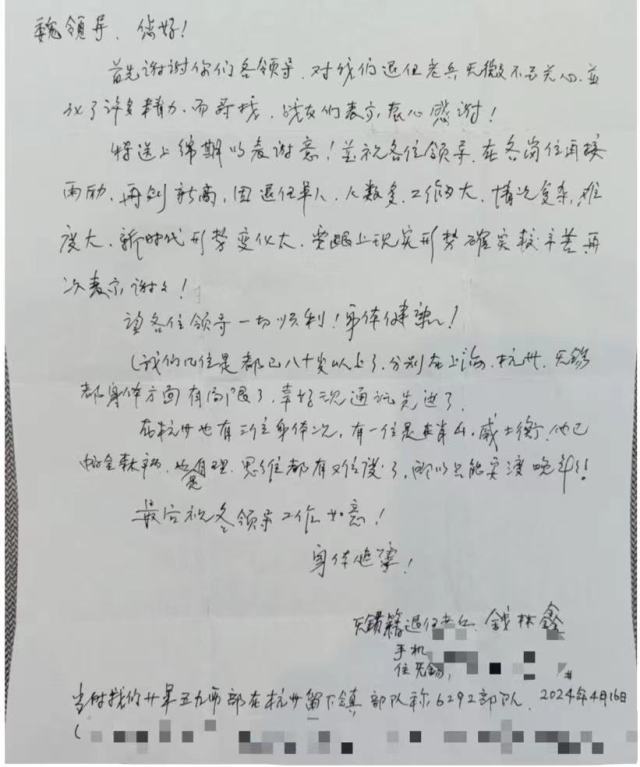 魏领导、您好!
首先谢谢你们各领导、对我们退伍老兵无微不至关心、并
化了许多精力、而奔波、战友们表示衷心感谢!
特送上锦旗以表谢意!并祝各位领导、在各岗位再接
再励、再创新高、因退伍军人、人数多、工作力大、情况复杂、难
度大、新时代形势变化大、要跟上现实形势确实较辛苦再
次表示谢谢!
望各位领导一切顺利!身体健康!
(我们几位是都已八十岁以上了、分别在上海、杭州、无锡
都身体方面有局限了、幸好现通讯先进了、
在杭州也有二位身体欠、有一位是 、戚士衡、他已
、思维都有 了、所以只能安渡晚年!
最后祝各领导工作如意!
身体健康!
无锡籍退伍老兵、钱林鑫
手机
住无锡,
当时我们廿军五九师部在杭州留下镇 部队称:6292部队、2024年4月16日
(